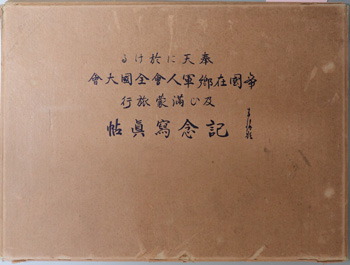 奉天に於ける
帝國在鄉軍人會全國大會
及び滿蒙旅行
記念寫眞帖